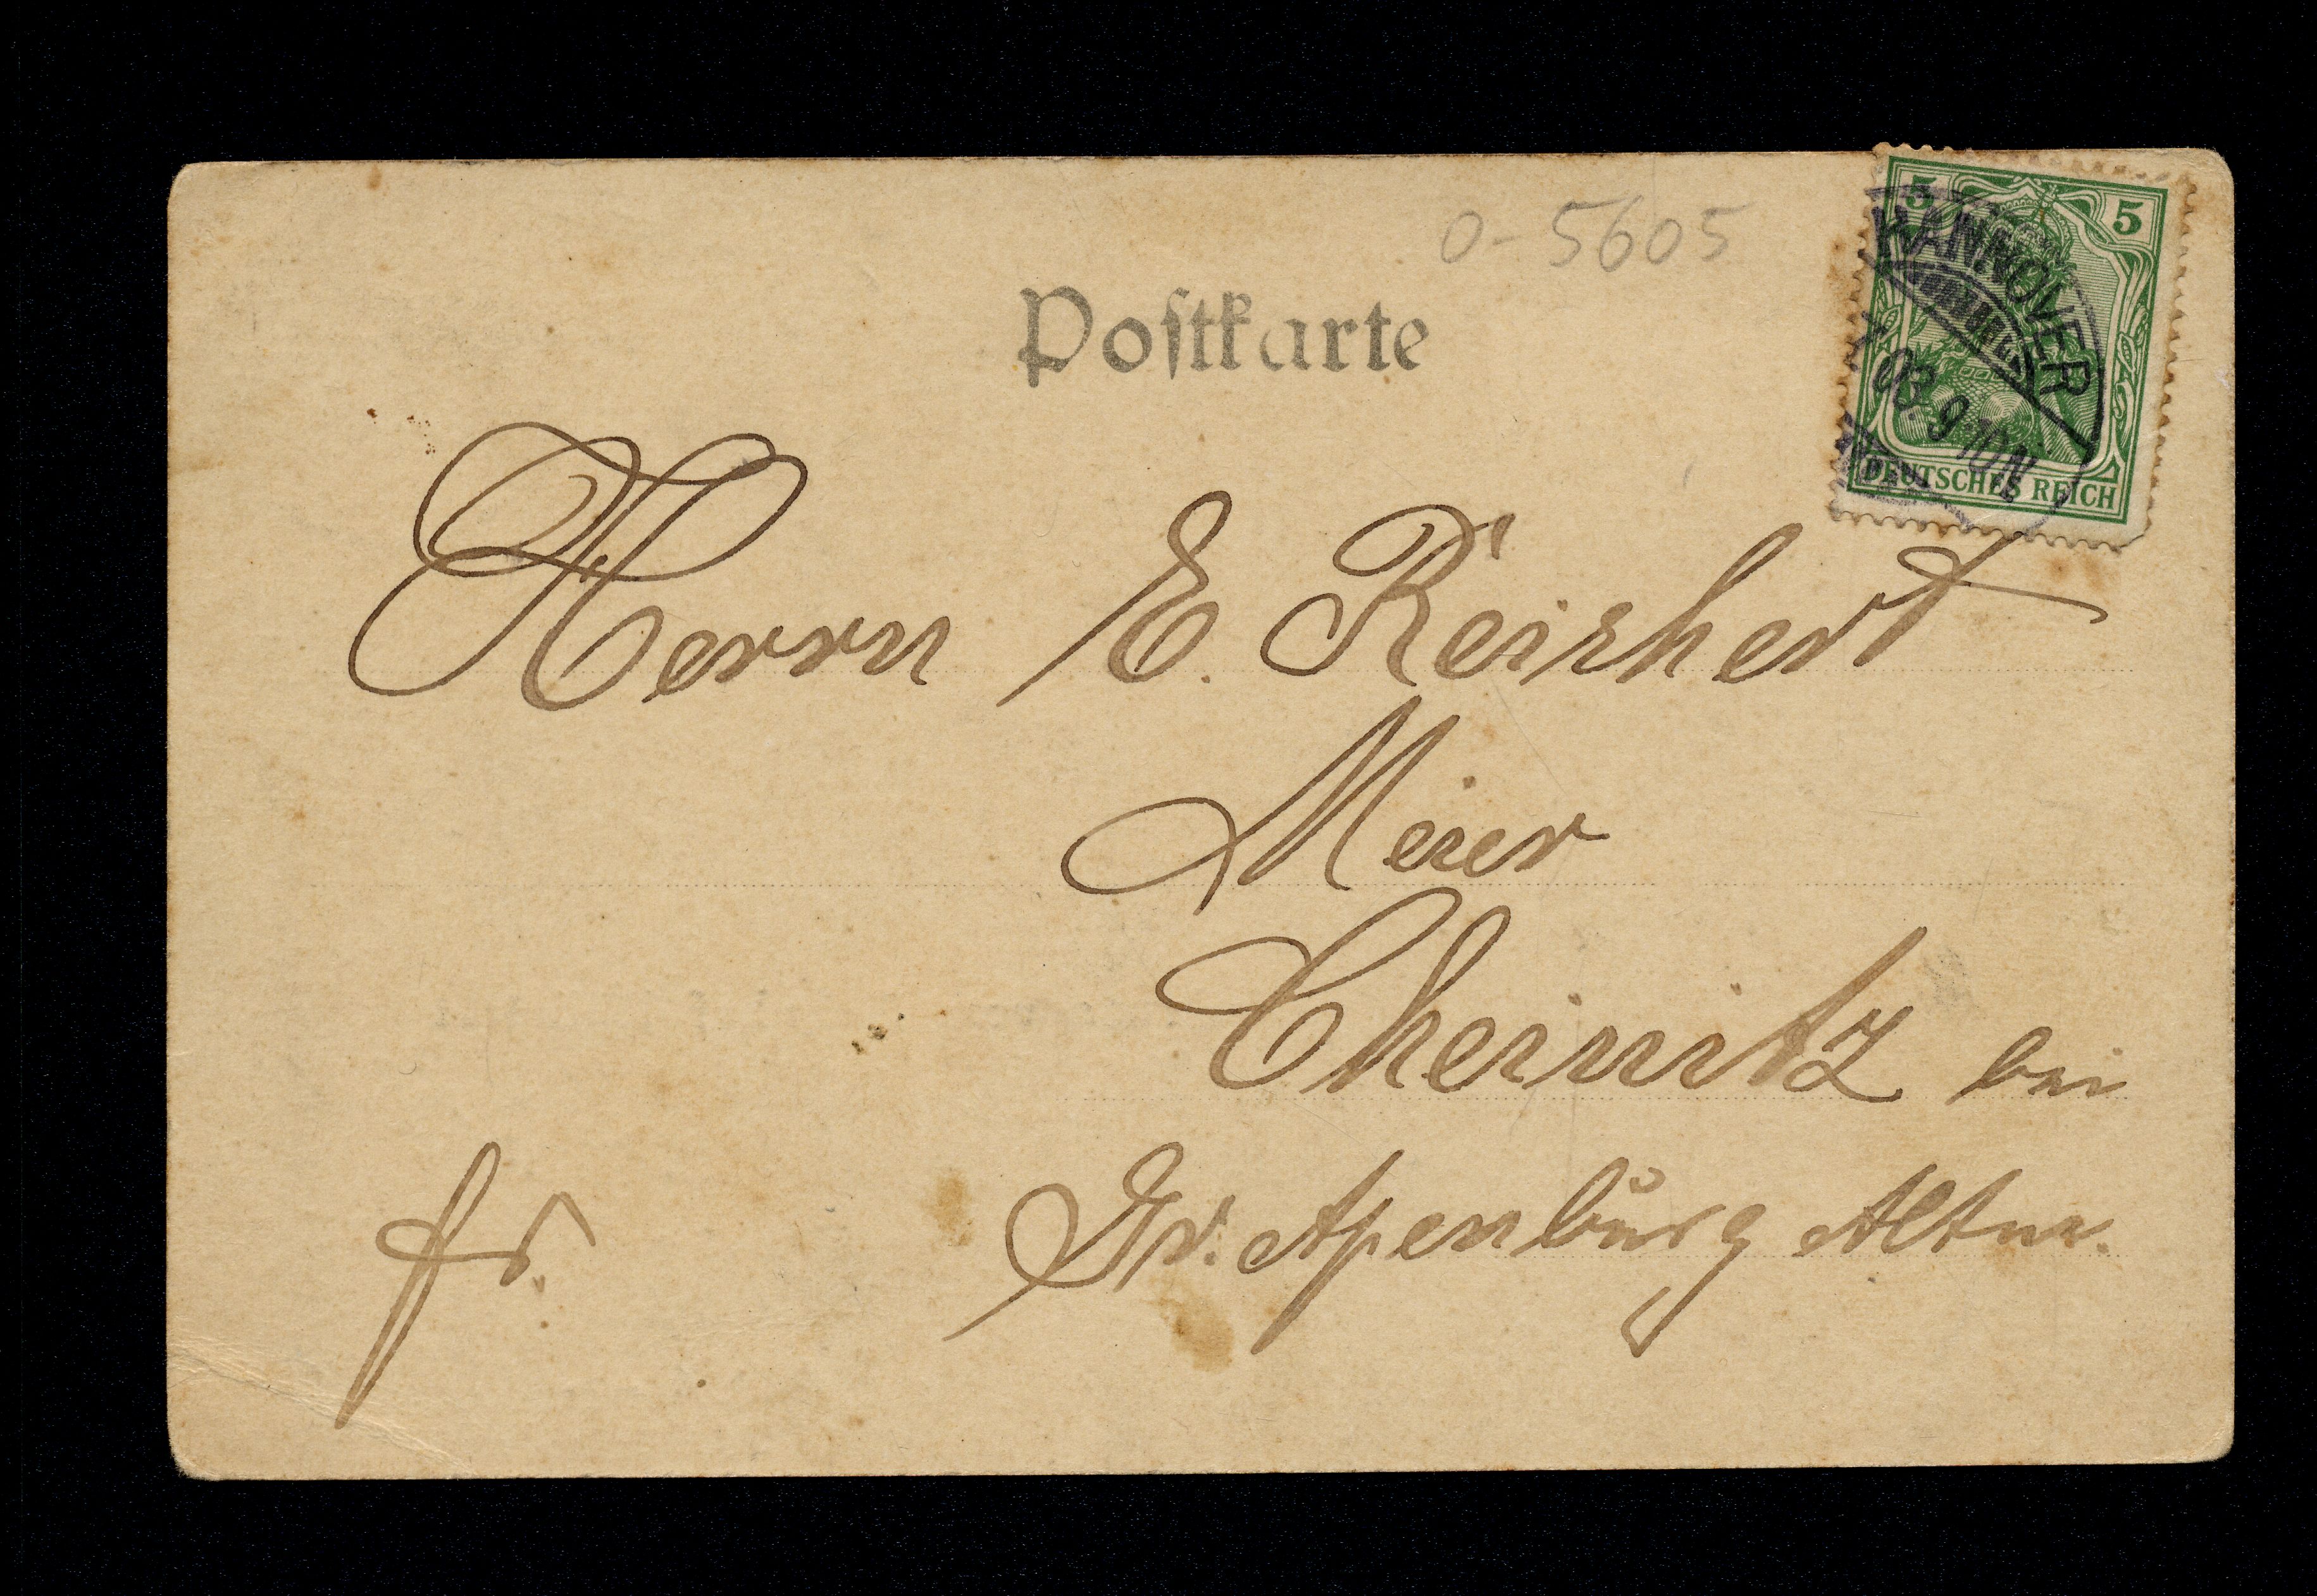 0-5605
5 5
HANNOVER
03. 9-10N
DEUTSCHES REICH
Postkarte
Herrn E. Reichert
Meier
Cheinitz bei
fr. Gr. Apenburg Altm.